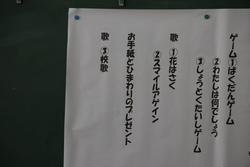 ゲーム①ばくだんゲーム
②わたしは何でしょう
③しょうとくたいしゲーム
歌①花はさく
②スマイルアゲイン
お手紙とひまわりのプレゼント
歌③校歌